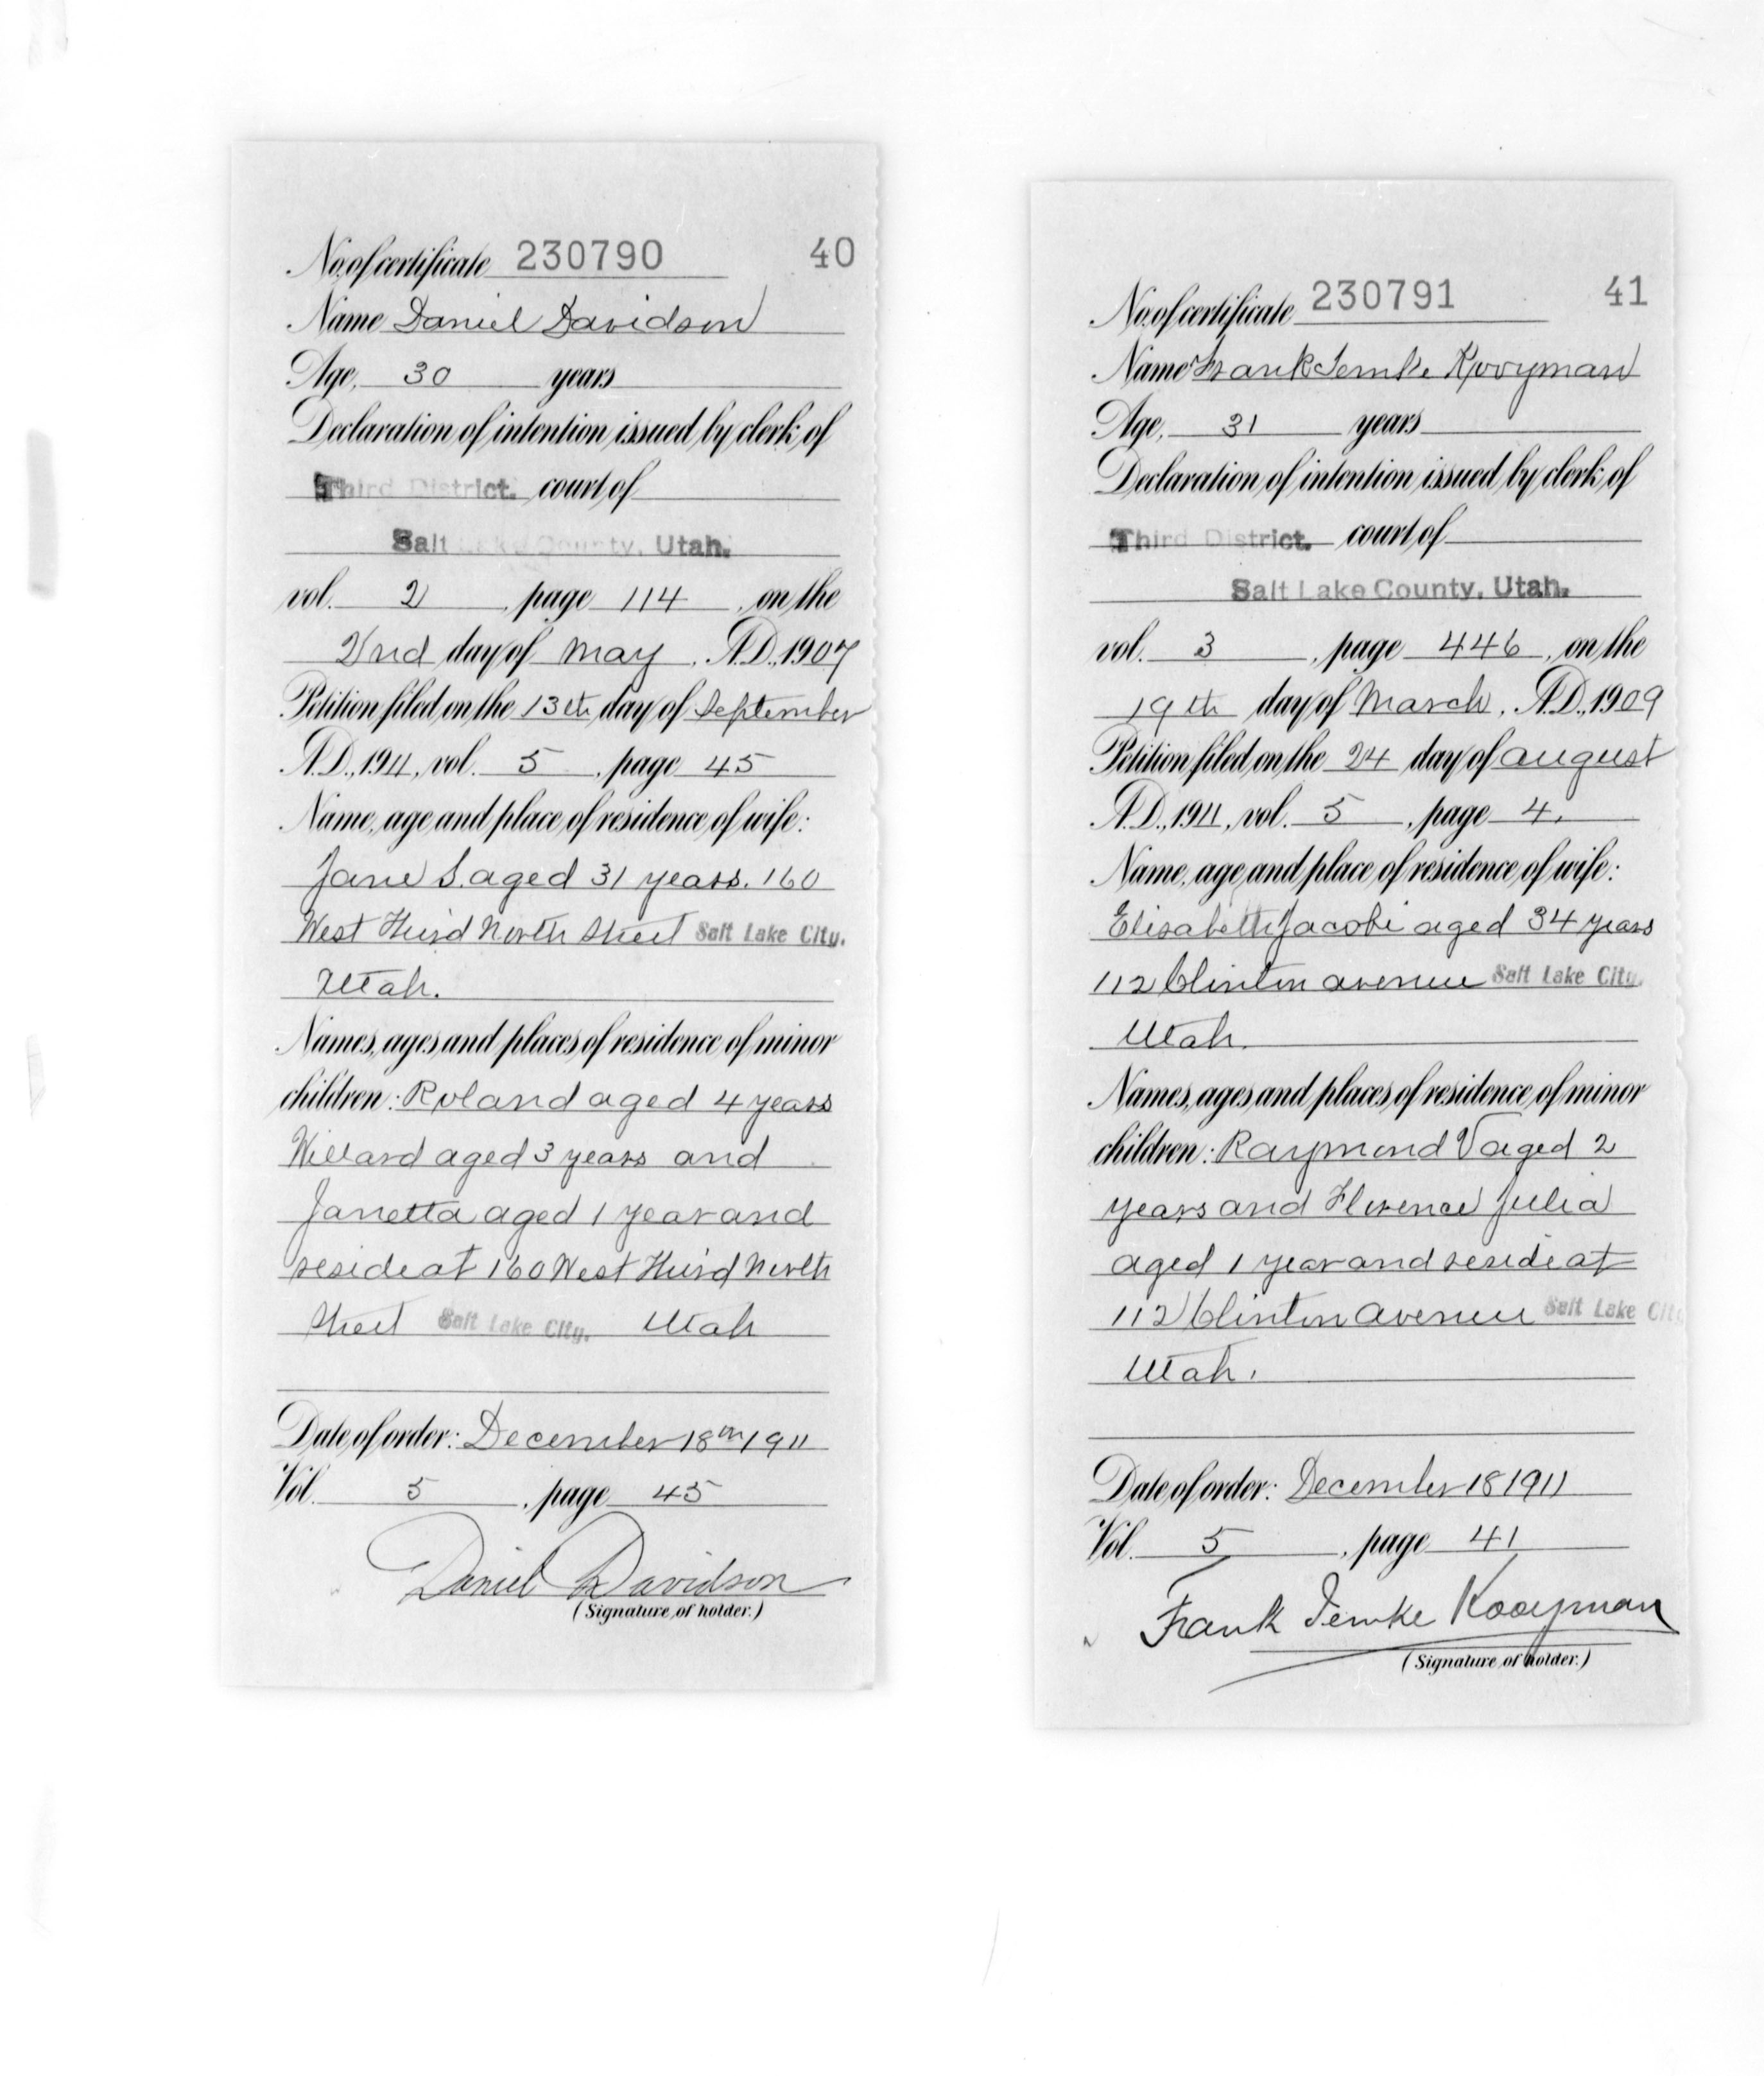 No. of certificate 230790 40
Name Daniel Davidson
Age, 30 years
Declaration of intention issued by clerk of
Third District. court of
Salt Lake County, Utah.
vol. 2, page 114, on the
2nd day of May, A.D., 1907
Petition filed on the 13th day of September
A.D., 1911, vol. 5, page 45
Name, age and place of residence of wife:
Jane S. aged 31 years. 160
West Third North Street Salt Lake City.
Utah.
Names, ages and places of residence of minor
children: Roland aged 4 years
Willard aged 3 years and
Janetta aged 1 year and
reside at 160 West Third North
Street Salt Lake City. Utah
Date of order: December 18th 1911
Vol. 5, page 45
Daniel Davidson
(Signature of holder.)
No. of certificate 230791 41
Name Frank Temke Kooyman
Age, 31 years
Declaration of intention issued by clerk of
Third District. court of
Salt Lake County, Utah.
vol. 3, page 446, on the
19th day of March, A.D., 1909
Petition filed on the 24 day of August
A.D., 1911, vol. 5, page 4.
Name, age and place of residence of wife:
Elisabeth Jacobi aged 34 years
112 Clinton avenue Salt Lake City.
Utah.
Names, ages and places of residence of minor
children: Raymond V aged 2
years and Florence Julia
aged 1 year and reside at
112 Clinton Avenue Salt Lake City
Utah.
Date of order: December 18 1911
Vol. 5, page 41
Frank Temke Kooyman
(Signature of holder.)